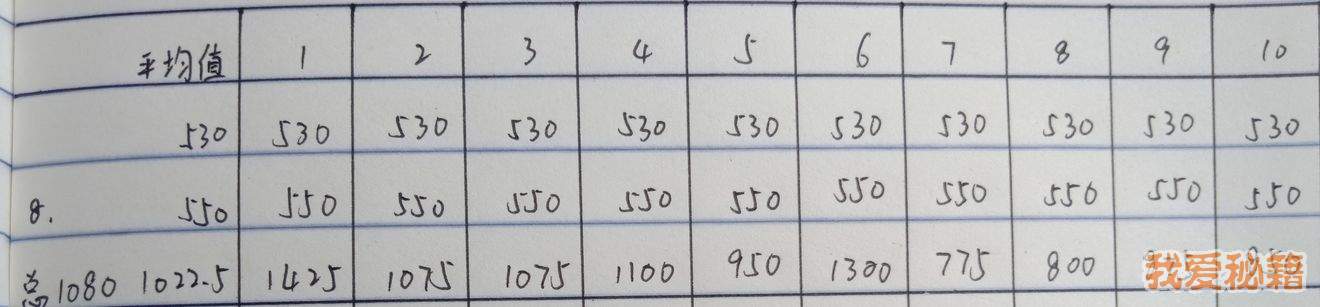 平均值 1 2 3 4 5 6 7 8 9 10
530 530 530 530 530 530 530 530 530 530 530
8. 550 550 550 550 550 550 550 550 550 550 550
总 1080 1022.5 1425 1075 1075 1100 950 1300 775 800
我爱秘籍